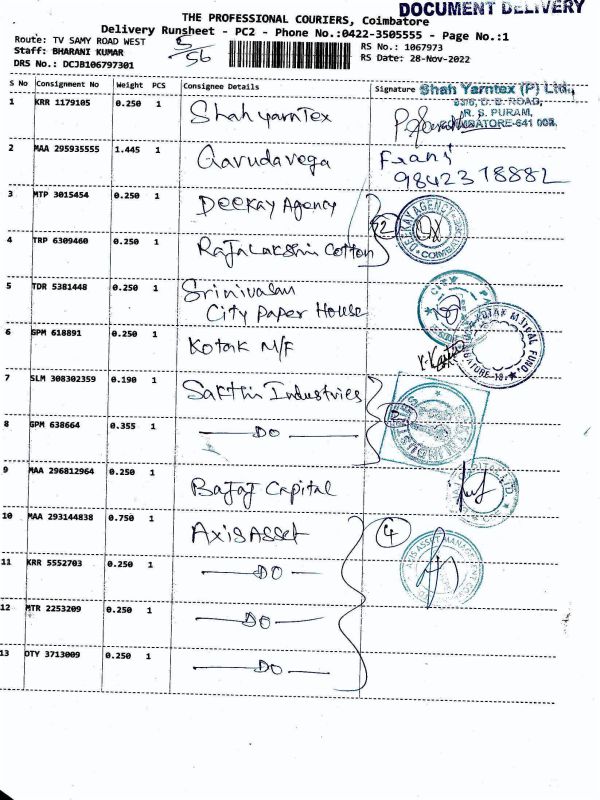 DOCUMENT DELIVERY
THE PROFESSIONAL COURIERS, Coimbatore
Delivery Runsheet - PC2 - Phone No.:0422-3505555 - Page No.:1
Route: TV SAMY ROAD WEST
5/56
RS No.: 1067973
Staff: BHARANI KUMAR
RS Date: 28-Nov-2022
DRS No.: DCJB106797301
S No Consignment No Weight PCS Consignee Details Signature
Shah Yarntex (P) Ltd.,
ROAD,
R. S. PURAM,
COIMBATORE-641 002.
1 KRR 1179105 0.250 1 Shah yarntex
2 MAA 295935555 1.445 1 Garudavega Frani
9842318882
3 MTP 3015454 0.250 1 Deekay Agency 2
4 TRP 6309460 0.250 1 Rajalakshmi Cotton
5 TDR 5381448 0.250 1 Srinivasan
City Paper House
6 GPM 618891 0.250 1 Kotak M/F
7 SLM 308302359 0.190 1 Sakthi Industries
8 GPM 638664 0.355 1 — DO — 2
9 MAA 296812964 0.250 1 Bajaj Capital
10 MAA 293144838 0.750 1 Axis Asset 4
AXIS ASSET MANAGEMENT
11 KRR 5552703 0.250 1 — DO —
12 MTR 2253209 0.250 1 — DO —
13 DTY 3713009 0.250 1 — DO —